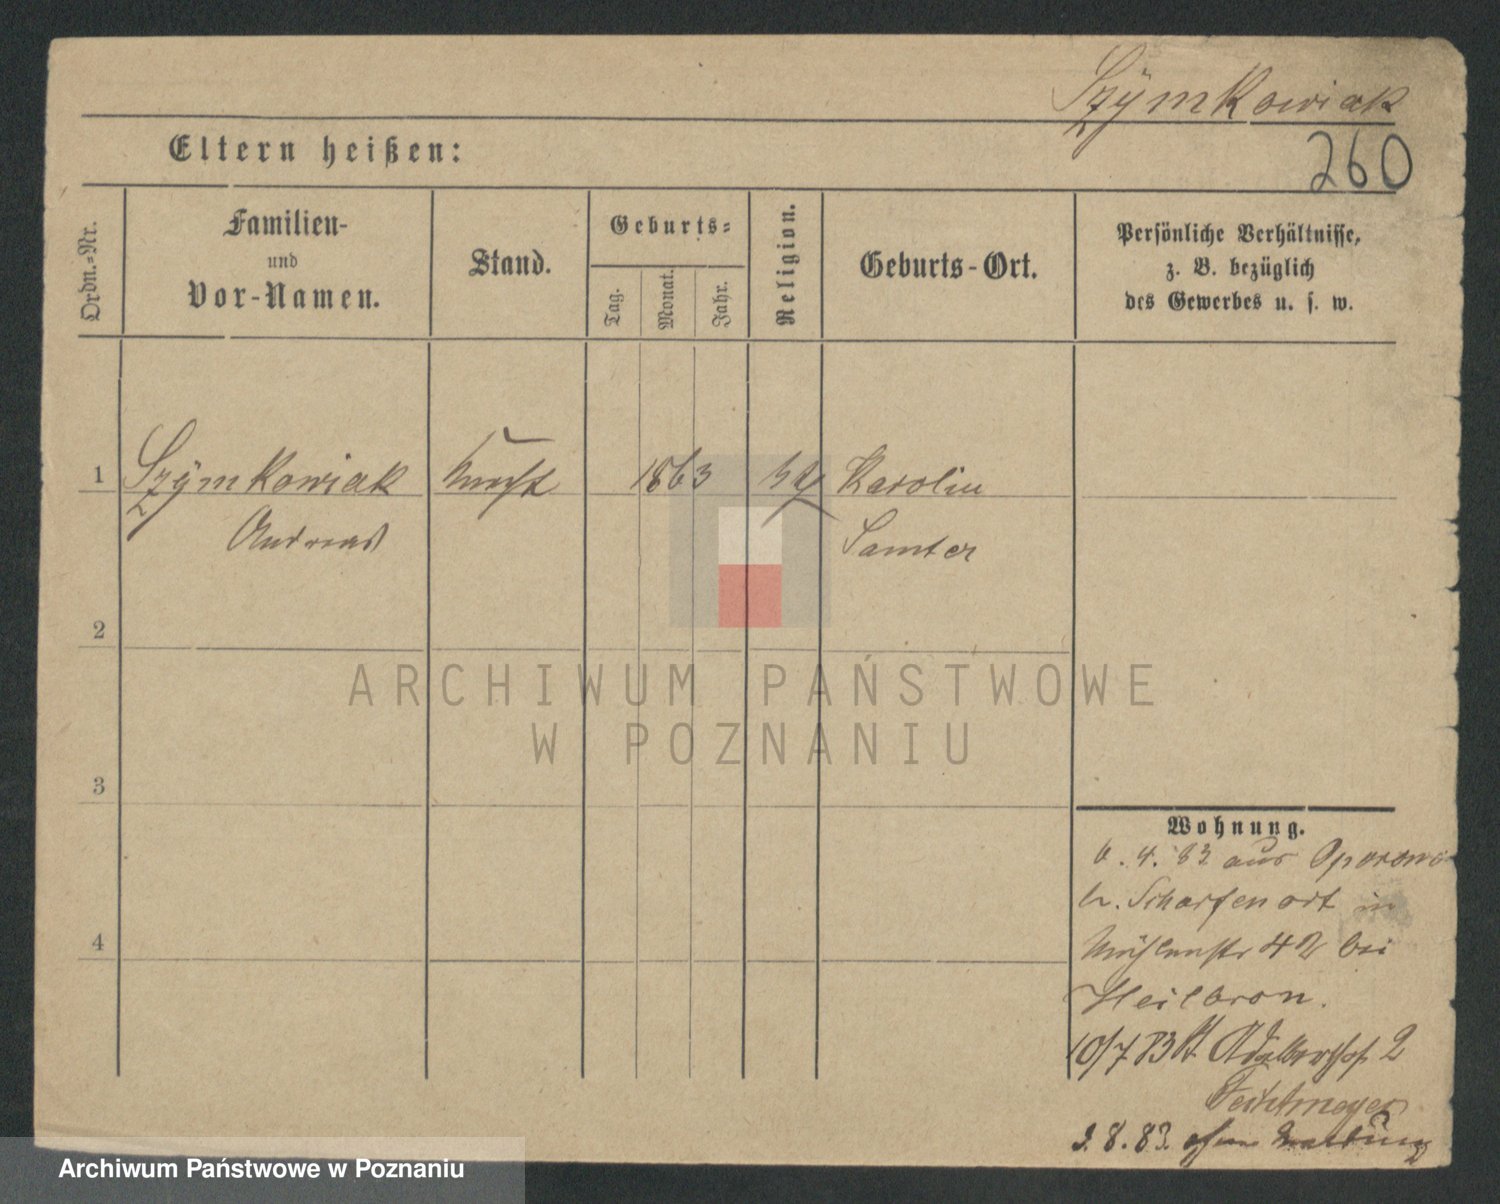 Szÿmkowiak
260
Eltern heißen:
Ordn.-Nr.
Familien-
und
Vor-Namen.
Stand.
Geburts-
Tag.
Monat.
Jahr.
Religion.
Geburts-Ort.
Persönliche Verhältnisse,
z. B. bezüglich
des Gewerbes u. s. w.
1 Szÿmkowiak Knecht 1863 Karolin
Andreas Samter
2
3
4
Wohnung.
6. 4. 83 aus Oporowo
b. Scharfenort in
Mühlenstr 42 bei
Heilbron.
10/7 83 St Adalbertstr 2
Feichtmeyer
2. 8. 83. ohne Meldung
ARCHIWUM PAŃSTWOWE
W POZNANIU
Archiwum Państwowe w Poznaniu